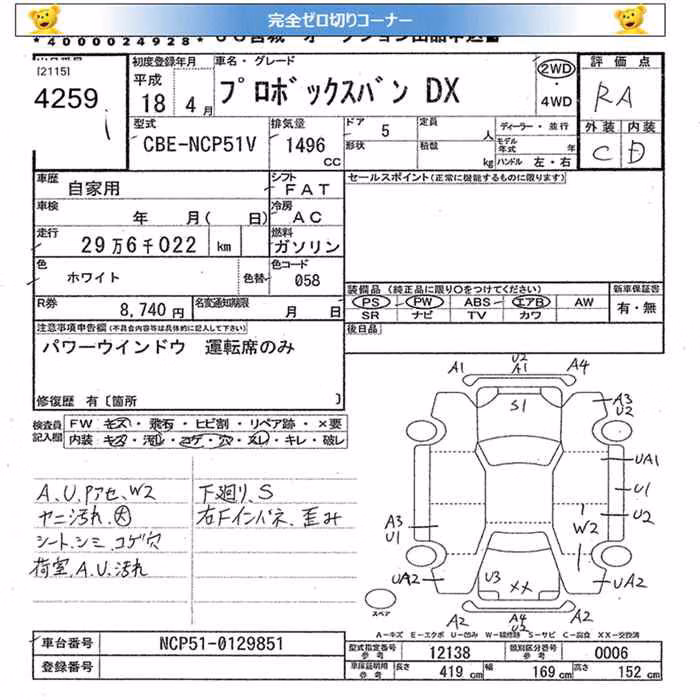 完全ゼロ切りコーナー
*4000024928*
[2115]
4259
初度登録年月
平成
18 4月
車名・グレード
プロボックスバン DX
2WD
・
4WD
評価点
RA
外装 内装
C D
型式
CBE-NCP51V
排気量
1496
CC
ドア 5
形状
定員 人
積載 kg
ディーラー・並行
モデル年式 年
ハンドル 左・右
車歴
自家用
シフト
FAT
車検
年 月( 日)
冷房
AC
走行
29万6千022 km
燃料
ガソリン
色
ホワイト
色替
色コード
058
R券
8,740円
名変通知期限
月 日
セールスポイント(正常に機能するものに限ります)
装備品 (純正品に限り○をつけてください)
PS PW ABS エアB AW
SR ナビ TV カワ
新車保証書
有・無
後日品
注意事項申告欄(不具合内容等は具体的に記入して下さい)
パワーウインドウ 運転席のみ
修復歴 有[箇所 ]
検査員
記入欄
FW キズ・飛石・ヒビ割・リペア跡・×要
内装 キズ・汚レ・コゲ・穴・スレ・キレ・破レ
A、U、Pアセ、W2
ヤニ汚れ、大
シート、シミ、コゲ穴
荷室、A、U、汚れ
下廻り、S
右Fインパネ、歪み
A1
U2
A1
A4
S1
A3
U2
UA1
U1
U2
W2
A3
U1
UA2
U3
XX
UA2
A2
A4
U2
A2
スペア
A-キズ E-エクボ U-凹み W-補修跡 S-サビ C-腐食 XX-交換済
車台番号
NCP51-0129851
登録番号
型式指定番号
参考
12138
類別区分番号
参考
0006
車庫証明用
参考
長さ 419 cm
幅 169 cm
高さ 152 cm